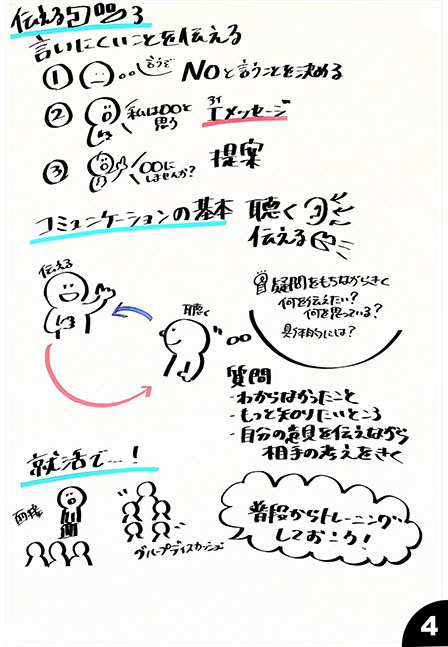 伝える 3
言いにくいことを伝える
① 言うぞ NOと言うことを決める
② 私は〇〇と思う Iメッセージ
アイ
③ 〇〇にしませんか? 提案
コミュニケーションの基本 聴く
伝える
伝える
聴く
疑問をもちながらきく
何を伝えたい?
何を思っている?
具体的には?
質問
・わからなかったこと
・もっと知りたいところ
・自分の意見を伝えながら
相手の考えをきく
就活で…!
面接
グループディスカッション
普段からトレーニング
しておこう!
4